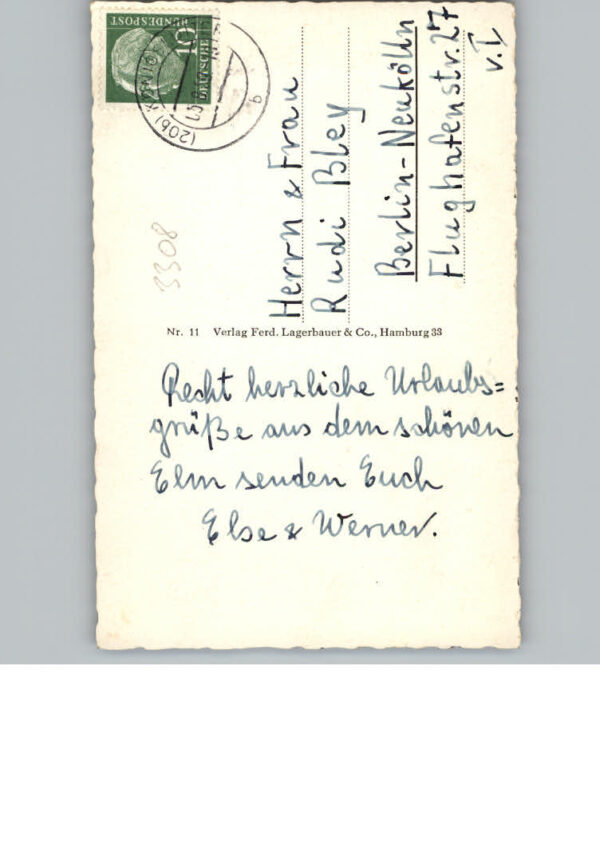 DEUTSCHE
BUNDESPOST
10
(20b) KÖNIG
b
3308
Herrn & Frau
Rudi Bley
Berlin-Neukölln
Flughafenstr. 27
v. I
Nr. 11 Verlag Ferd. Lagerbauer & Co., Hamburg 33
Recht herzliche Urlaubs=
grüße aus dem schönen
Elm senden Euch
Else & Werner.